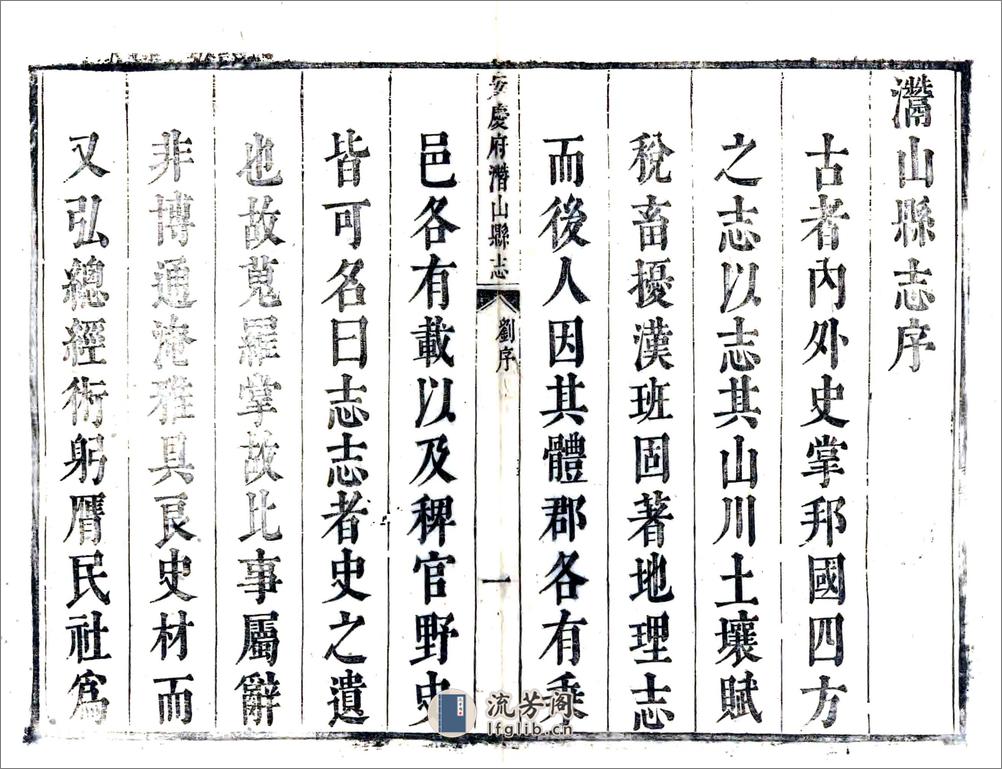 灊山縣志序
古者內外史掌邦國四方
之志以志其山川土壤賦
稅畜擾漢班固著地理志
而後人因其體郡各有乘
安慶府潛山縣志
劉序
一
邑各有載以及稗官野史
皆可名曰志志者史之遺
也故蒐羅掌故比事屬辭
非博通淹雅具良史材而
又弘總經術躬膺民社爲
流芳阁
lfglib.cn